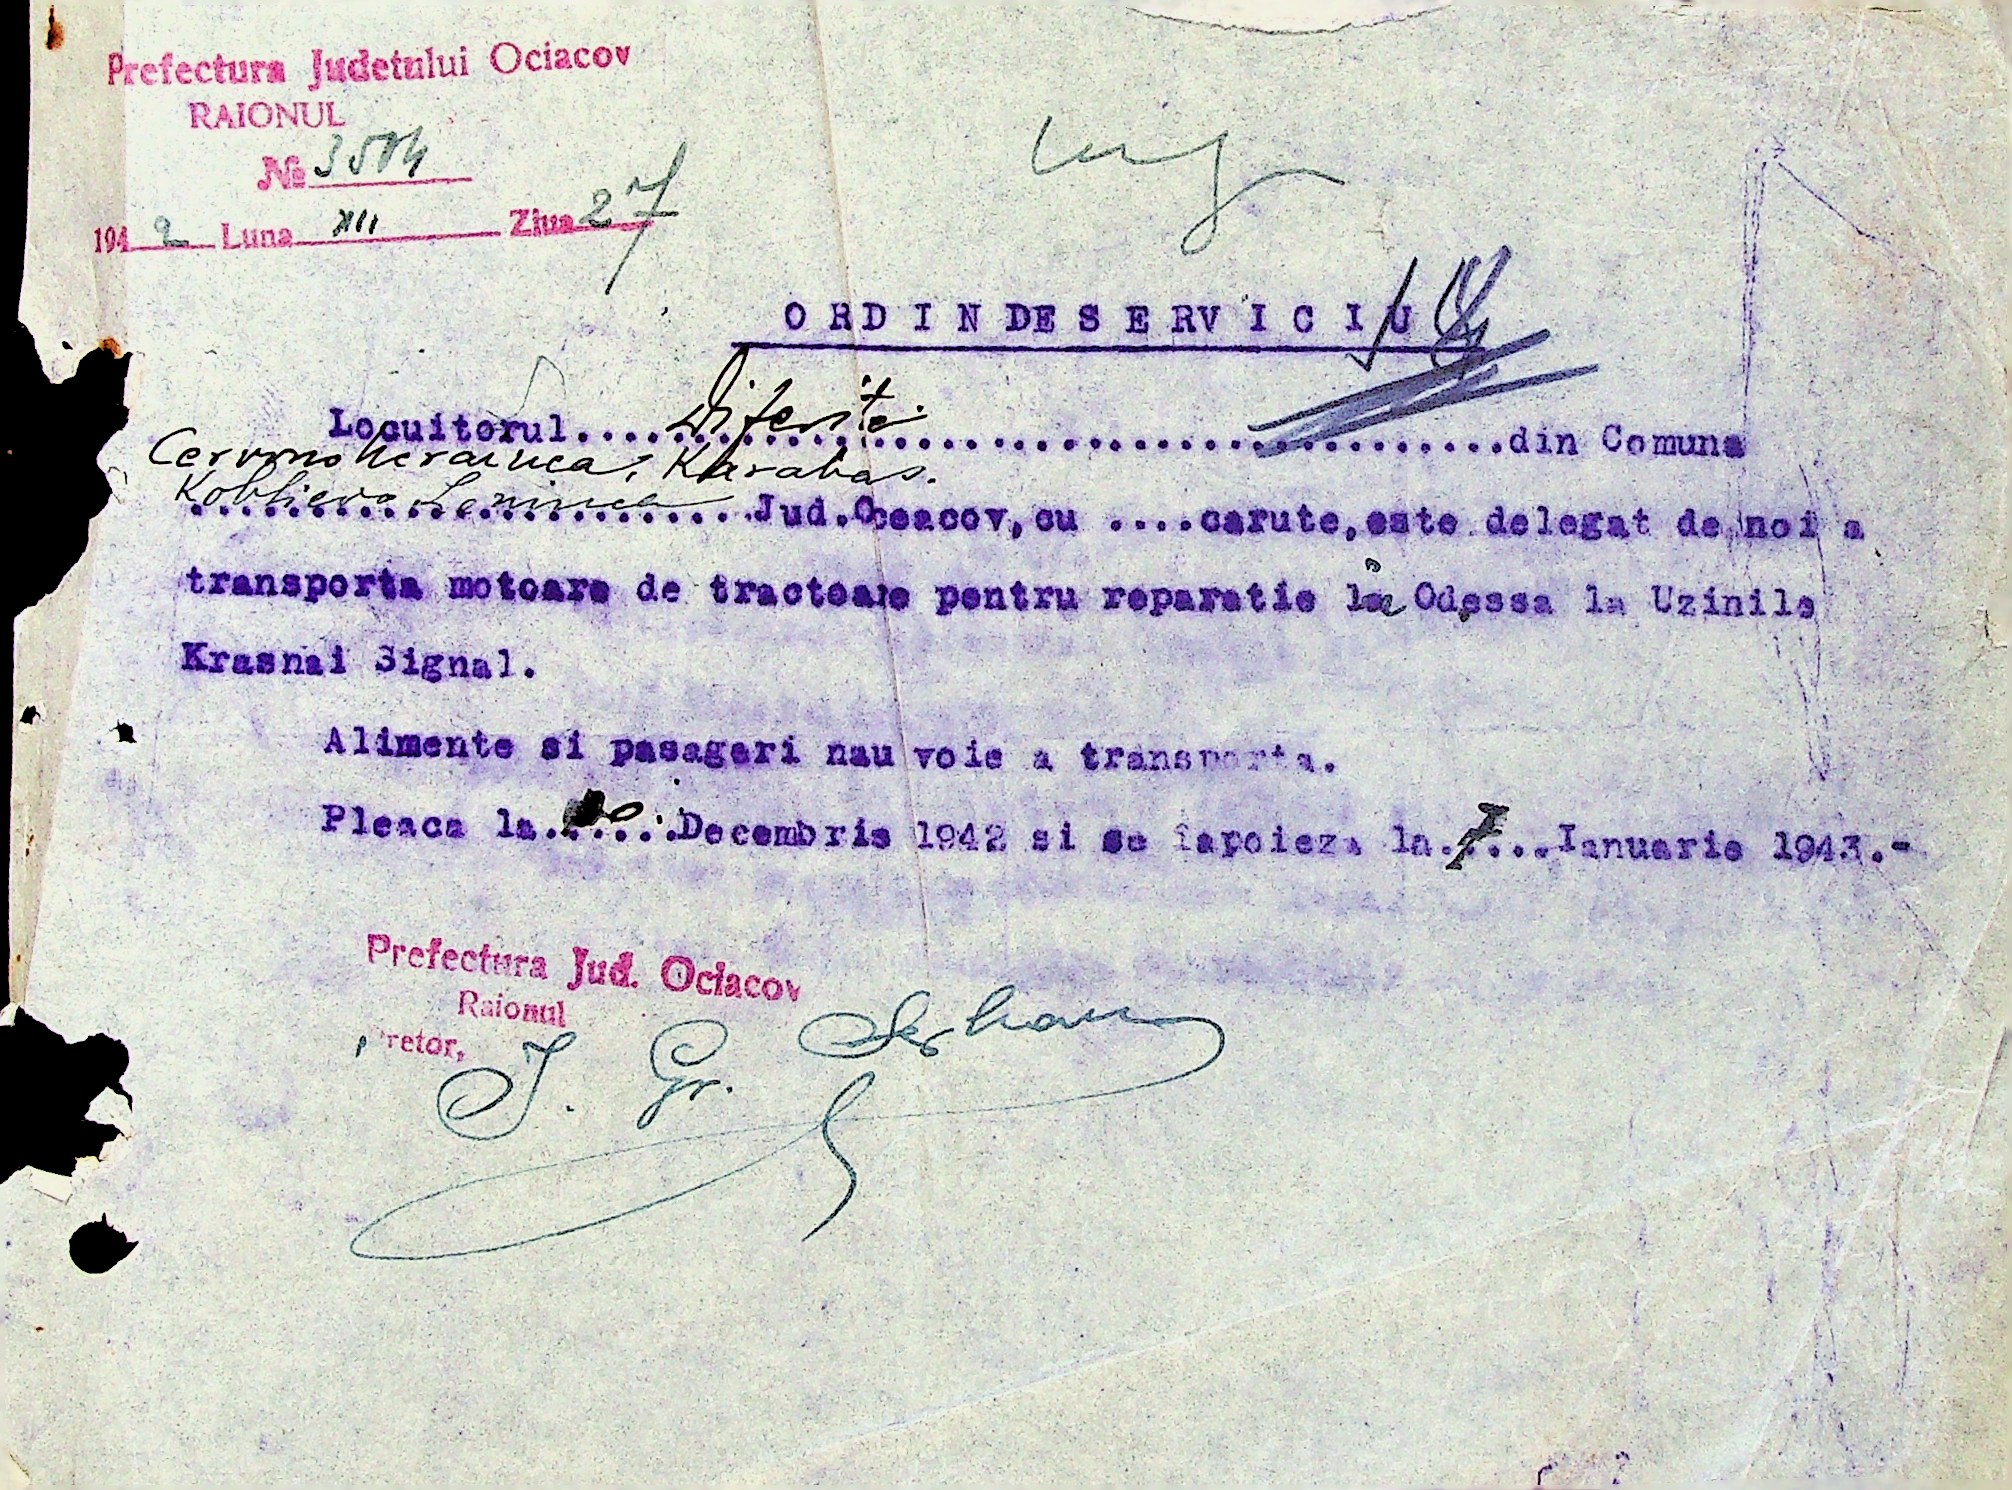 Prefectura Judetului Ociacov
RAIONUL
No 3504
1942 Luna XII Ziua 27
ORDIN DE SERVICIU
Locuitorul.... Diferiti ....din Comuna
Karabas.
Koblievo Leninca ....Jud.Oceacov,cu ....carute,este delegat de noi a
transporta motoare de tractoare pentru reparatie la Odessa la Uzinile
Krasnai Signal.
Alimente si pasageri nau voie a transporta.
Pleaca la......Decembrie 1942 si se iapoieza la 7....Ianuarie 1943.-
Prefectura Jud. Ociacov
Raionul
Pretor,
I. Gr.